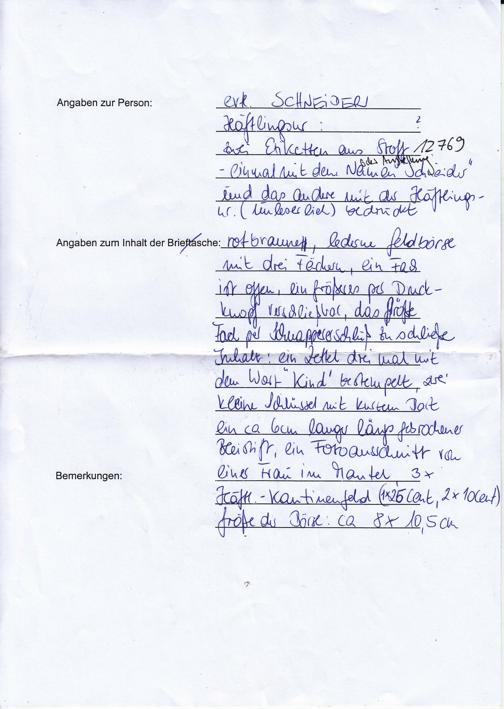 Angaben zur Person: evtl. SCHNEIDER
Häftlingsnr.: ?
zwei Etiketten aus Stoff 12769
- einmal mit dem Namen "Schneider"
und das andere mit der Häftlings-
nr. (unleserlich) bedruckt
Angaben zum Inhalt der Brieftasche: rotbraune, lederne Geldbörse
mit drei Fächern, ein Fach
ist offen, ein größeres per Druck-
knopf verschließbar, das größte
Fach per Schnappverschluß zu schließen
Inhalt: ein Zettel drei mal mit
dem Wort "Kind" bestempelt, zwei
kleine Schlüssel mit kurzem Bart
ein ca 6cm langer längs gebrochener
Bleistift, ein Fotoausschnitt von
Bemerkungen: einer Frau im Mantel, 3x
Häftl.-Kantinengeld (1x25 Cent, 2x10Cent)
Größe der Börse: ca 8x 10,5cm